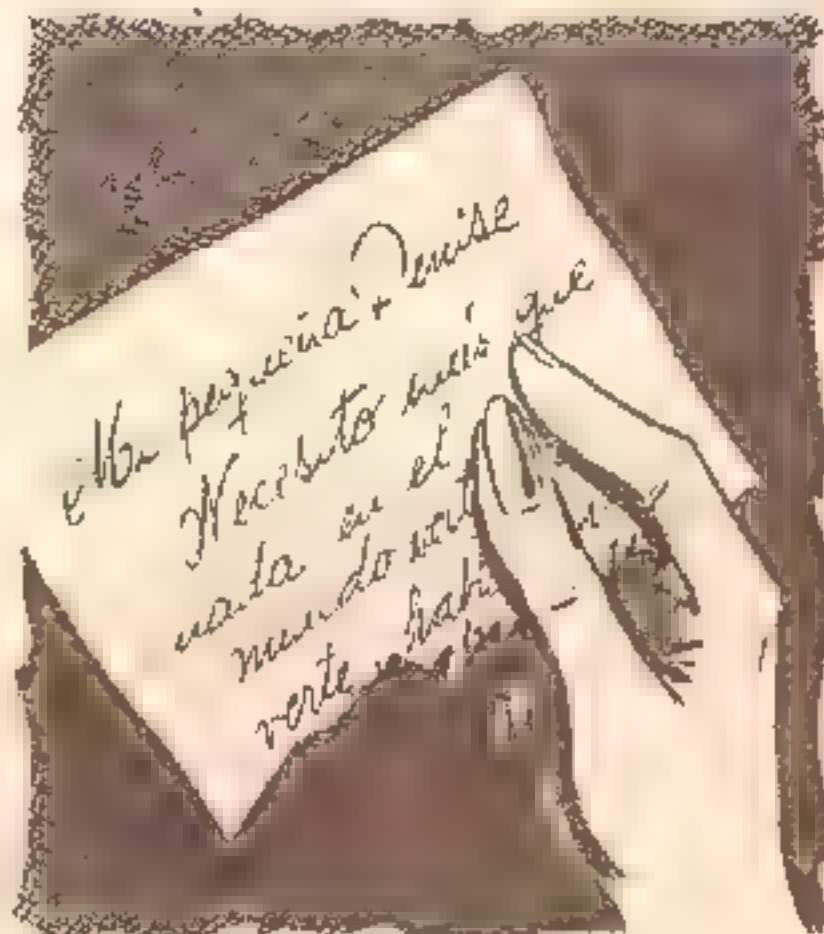 Mi pequeña Denise
Necesito más que
nada en el
mundo
verte